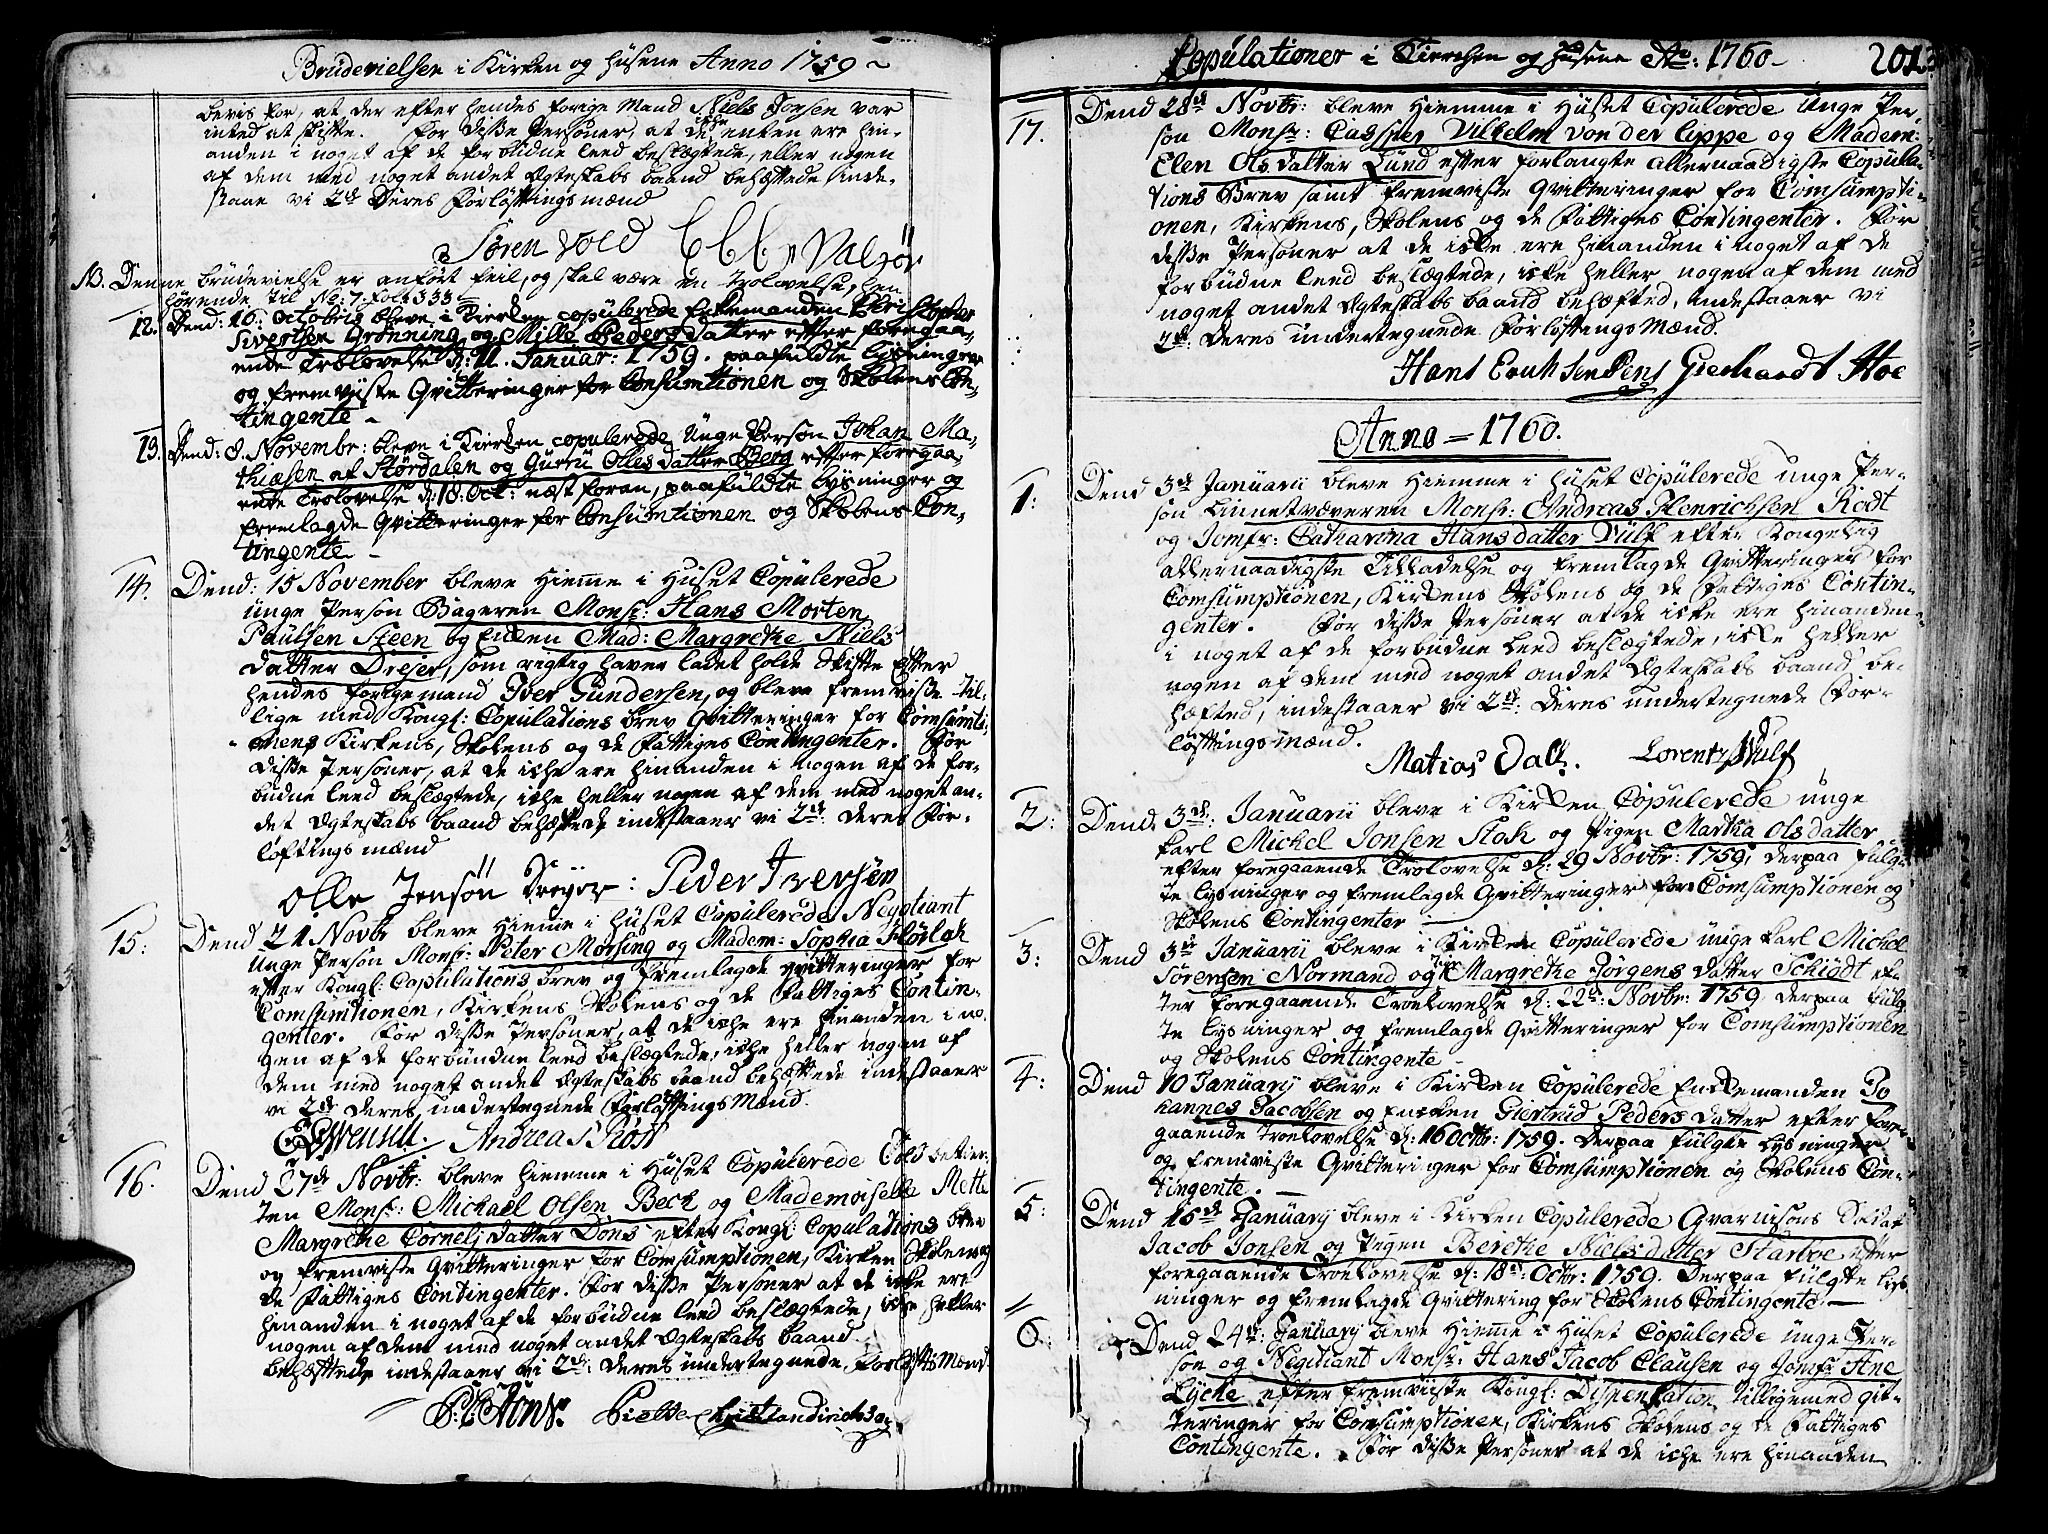 Brudevielser i Kirken og Husene Anno 1759
bevis for, at der efter hendes forige Mand Niels Jonsen var
inted at skifte. For disse Personer, at de icke enten ere hin-
anden i noget af de forbudne leed beslægtede, eller nogen
af dem med noget andet Ægteskabs baand behæftede inde-
staae vi 2de Deres Forløftningsmænd
Søren Vold
NB. Denne brudevielse er anført feil, og skal være en Trolovelse, hen
hørende til No: 7. fol: 333
12. Dend: 16: Octobris bleve i Kierken copulerede Enkemanden Christopher
Sivertsen Grønning og Mille Pedersdatter efter foregaa-
ende Trolovelse d: 11. Januar: 1759. paafuldte lysninger
og fremviiste Qvitteringer for Consumtionen og Skolens Con-
tingente
13. Dend: 8. Novembr: bleve i Kierken copulerede Unge Person Johan Ma-
thiasen af Størdalen og Guru Ollesdatter Berg efter foregaa-
ende Trolovelse d: 18. Oct: næst foran, paafuldte Lysninger og
fremlagde Qvitteringer for Consumtionen og Skolens Con-
tingente
14. Dend: 15 November bleve Hiemme i Huset Copulerede
unge Person Bageren Monsr: Hans Morten
Paulsen Steen og Enken Mad: Margrethe Niels
datter Drejer, som rigtig haver ladet holde Skifte efter
hendes forige mand Iver Gundersen, og bleve fremviste til-
lige med Kongl: Copulations brev Qvitteringer for Comsumti-
onens Kirkens, Skolens og de Fattiges Contingenter. For
disse Personer, at de iche ere hinanden i nogen af de for-
budne leed beslægtede, iche heller nogen af dem med noget an-
det Ægteskabs baand behæftede indestaaer vi 2de: deres For-
løftnings mænd
Olle Jensøn Dreyer: Peder Iversen
15: Dend 21 Novbr bleve Hiemme i Huset Copulerede Negotiant
Unge Person Monsr: Peter Mørsing og Madem: Sophia Hørlok
efter Kongl: Copulations brev og fremlagde qvitteringer for
Comsumtionen, Kirkens Skolens og de Fattiges Contin-
genter. For disse Personer, at de iche ere hinanden i no-
gen af de forbundne leed beslægtede, iche heller nogen af
dem med noget andet Ægteskabs baand behæftede indestaaer
vi 2de Deres undertegnede Forløftnings Mænd.
Andreas
16. Dend 27de Novbr: bleve hiemme i Huset Copulerede
ten Monsr: Michael Olsen Beck og Mademoiselle Mette
Margrethe Cornelj datter Dons efter Kongl: Copulations brev
og fremviste Qvitteringer for Comsumptionen, Kirken Skolens og
de Fattiges Contingenter. For disse Personer at de icke ere
hinanden i noget af de forbudne leed beslægtede, icke heller
nogen af dem med noget andet Ægteskabs baand
behæftede indestaaer vi 2de: Deres undertegnede Forløfts Mænd.
Copulationer i Kierchen og Husene Ao: 1760
201
17. Dend 28de Novbr: bleve Hiemme i Huset Copulerede Unge Per-
son Monsr: Casper Vilhelm von der Lippe og Madem:
Elen Olsdatter Lund efter forlangte allernaadigste Copula-
tions Brev samt fremviste Qvitteringer for Comsumpti-
onen, Kirkens, Skolens og de Fattiges Contingenter. For
disse Personer at de icke ere hinanden i noget af de
forbudne leed beslægtede, icke heller nogen af dem med
noget andet Ægteskabs baand behæfted, indestaaer vi
2de: Deres undertegnede Forløftnings Mænd.
Hans Erichsen Gierhardt Hoe
Anno = 1760.
1: Dend 3de Januarii bleve Hiemme i Huset Copulerede unge Per-
son Linnetvæveren Monsr: Andreas Henrichsen Rodt
og Jomfr: Catharina Hansdatter Vulf efter Kongelig
allernaadigste Tilladelse og fremlagde Qvitteringer for
Comsumptionen, Kirkens Skolens og de Fattiges Contin-
genter. For disse Personer at de icke ere hinanden
i noget af de forbudne leed beslægtede, icke heller
nogen af dem med noget andet Ægteskabs baand be-
hæfted, indestaaer vi 2de: Deres undertegnede For-
løftningsmænd.
Matias Dall. Lorentz Wulf
2: Dend 3de: Januarii bleve i Kirken Copulerede unge
Karl Michel Jonsen Stok og Pigen Martha Olsdatter
efter foregaaende Trolovelse d: 29 Novbr: 1759, derpaa fulg-
te lysninger og fremlagde Qvitteringer for Comsumptionen og
Skolens Contingenter
3: Dend 3de Januarii bleve i Kirken Copulerede unge Karl Michel
Sørensen Normand og Margrethe Jørgens datter Schiødt ef-
ter foregaaende Troelovelse d: 22de: Novbr: 1759. derpaa fulg-
te lysninger og fremlagde Qvitteringer for Comsumptionen
og Skolens Contingente
4: Dend 10 Januarij bleve i Kirken Copulerede Enckemanden Jo-
hannes Jacobsen og Encken Giertrud Peders datter efter fore-
gaaende Troelovelse d: 16 Octbr: 1759. Derpaa fulgte lysninger
og fremviste Qvitteringer for Comsumptionen og Skolens Con-
tingente.
5: Dend 15de January bleve i Kirken Copulerede Gvarnisons Soldat
Jacob Jonsen og Pigen Berethe Nielsdatter Starboe efter
foregaaende Troelovelse d: 18de: Octbr: 1759. Derpaa fulgte lys-
ninger og fremlagde Qvittering for Skolens Contingente.
6: Dend 24de: January bleve Hiemme i Huset Copulerede unge Per-
son og Negitiant Monsr: Hans Jacob Clausen og Jomfr: Ane
Lycke efter fremviiste Kongl: Dispensation tilligemed qvit-
teringer for Comsumptionen, Kirkens Skolens og de Fattiges
Contingente. For disse Personer at de iche ere hinanden